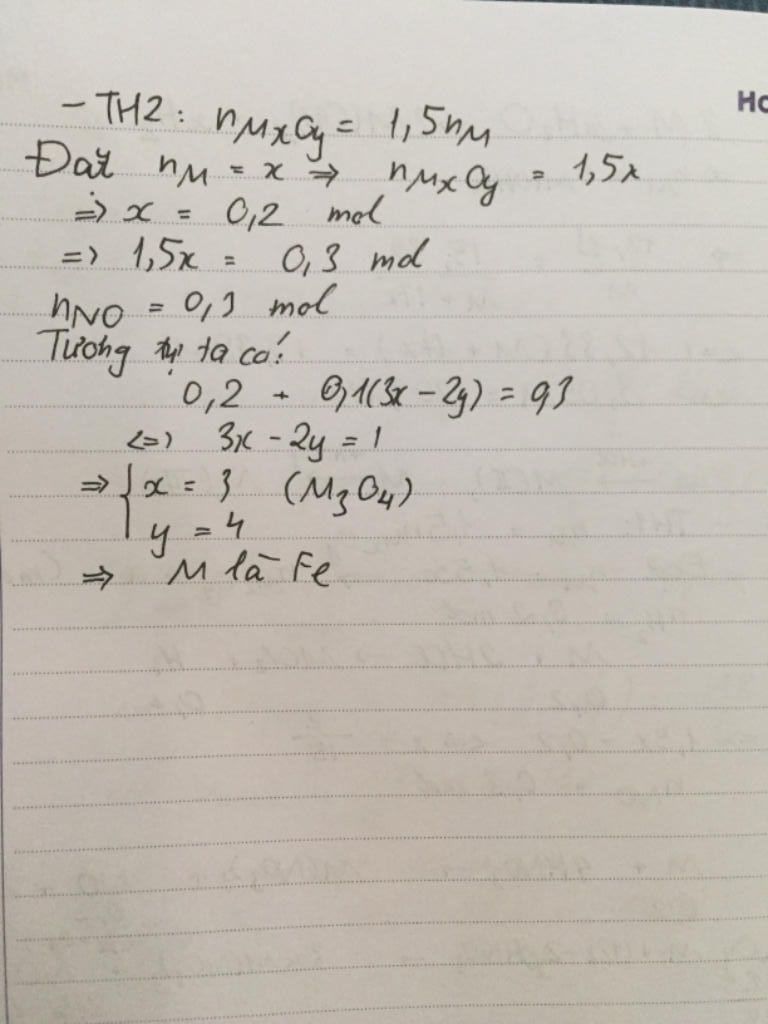 Ho
- TH2: nMxOy = 1,5nM
Đặt nM = x => nMxOy = 1,5x
=> x = 0,2 mol
=> 1,5x = 0,3 mol
nNO = 0,3 mol
Tương tự ta có:
0,2 + 0,1(3x - 2y) = 0,3
<=> 3x - 2y = 1
=> { x = 3 (M3O4)
y = 4
=> M là Fe